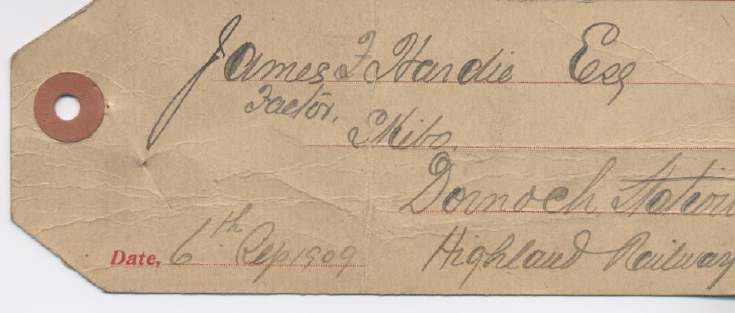 James F Hardie Esq
Factor,
Skibo.
Dornoch Station
Highland Railway
Date, 6th Sep 1909